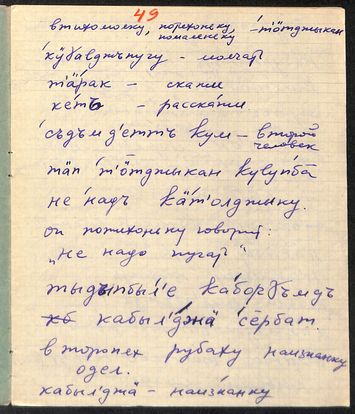 49
втихомолку, потихоньку – т'ӧ̄тджыкан
помаленьку
кӱбавджъпугу – молчат
тӓ́рак – скажи
ке́тъ – расскажи
съ́дъм д'еттъ кум – второй
человек
тӓп т'ӧ̄тджыкан кувупба̄
не надъ кӓт'олджыку.
он потихоньку говорит:
„не надо пугат"
тыдыпбыл'е каборɣъмдъ
кабыл'джӓ се̄рбат.
второпях рубаху наизнанку
одел.
кабыл'джӓ – наизнанку